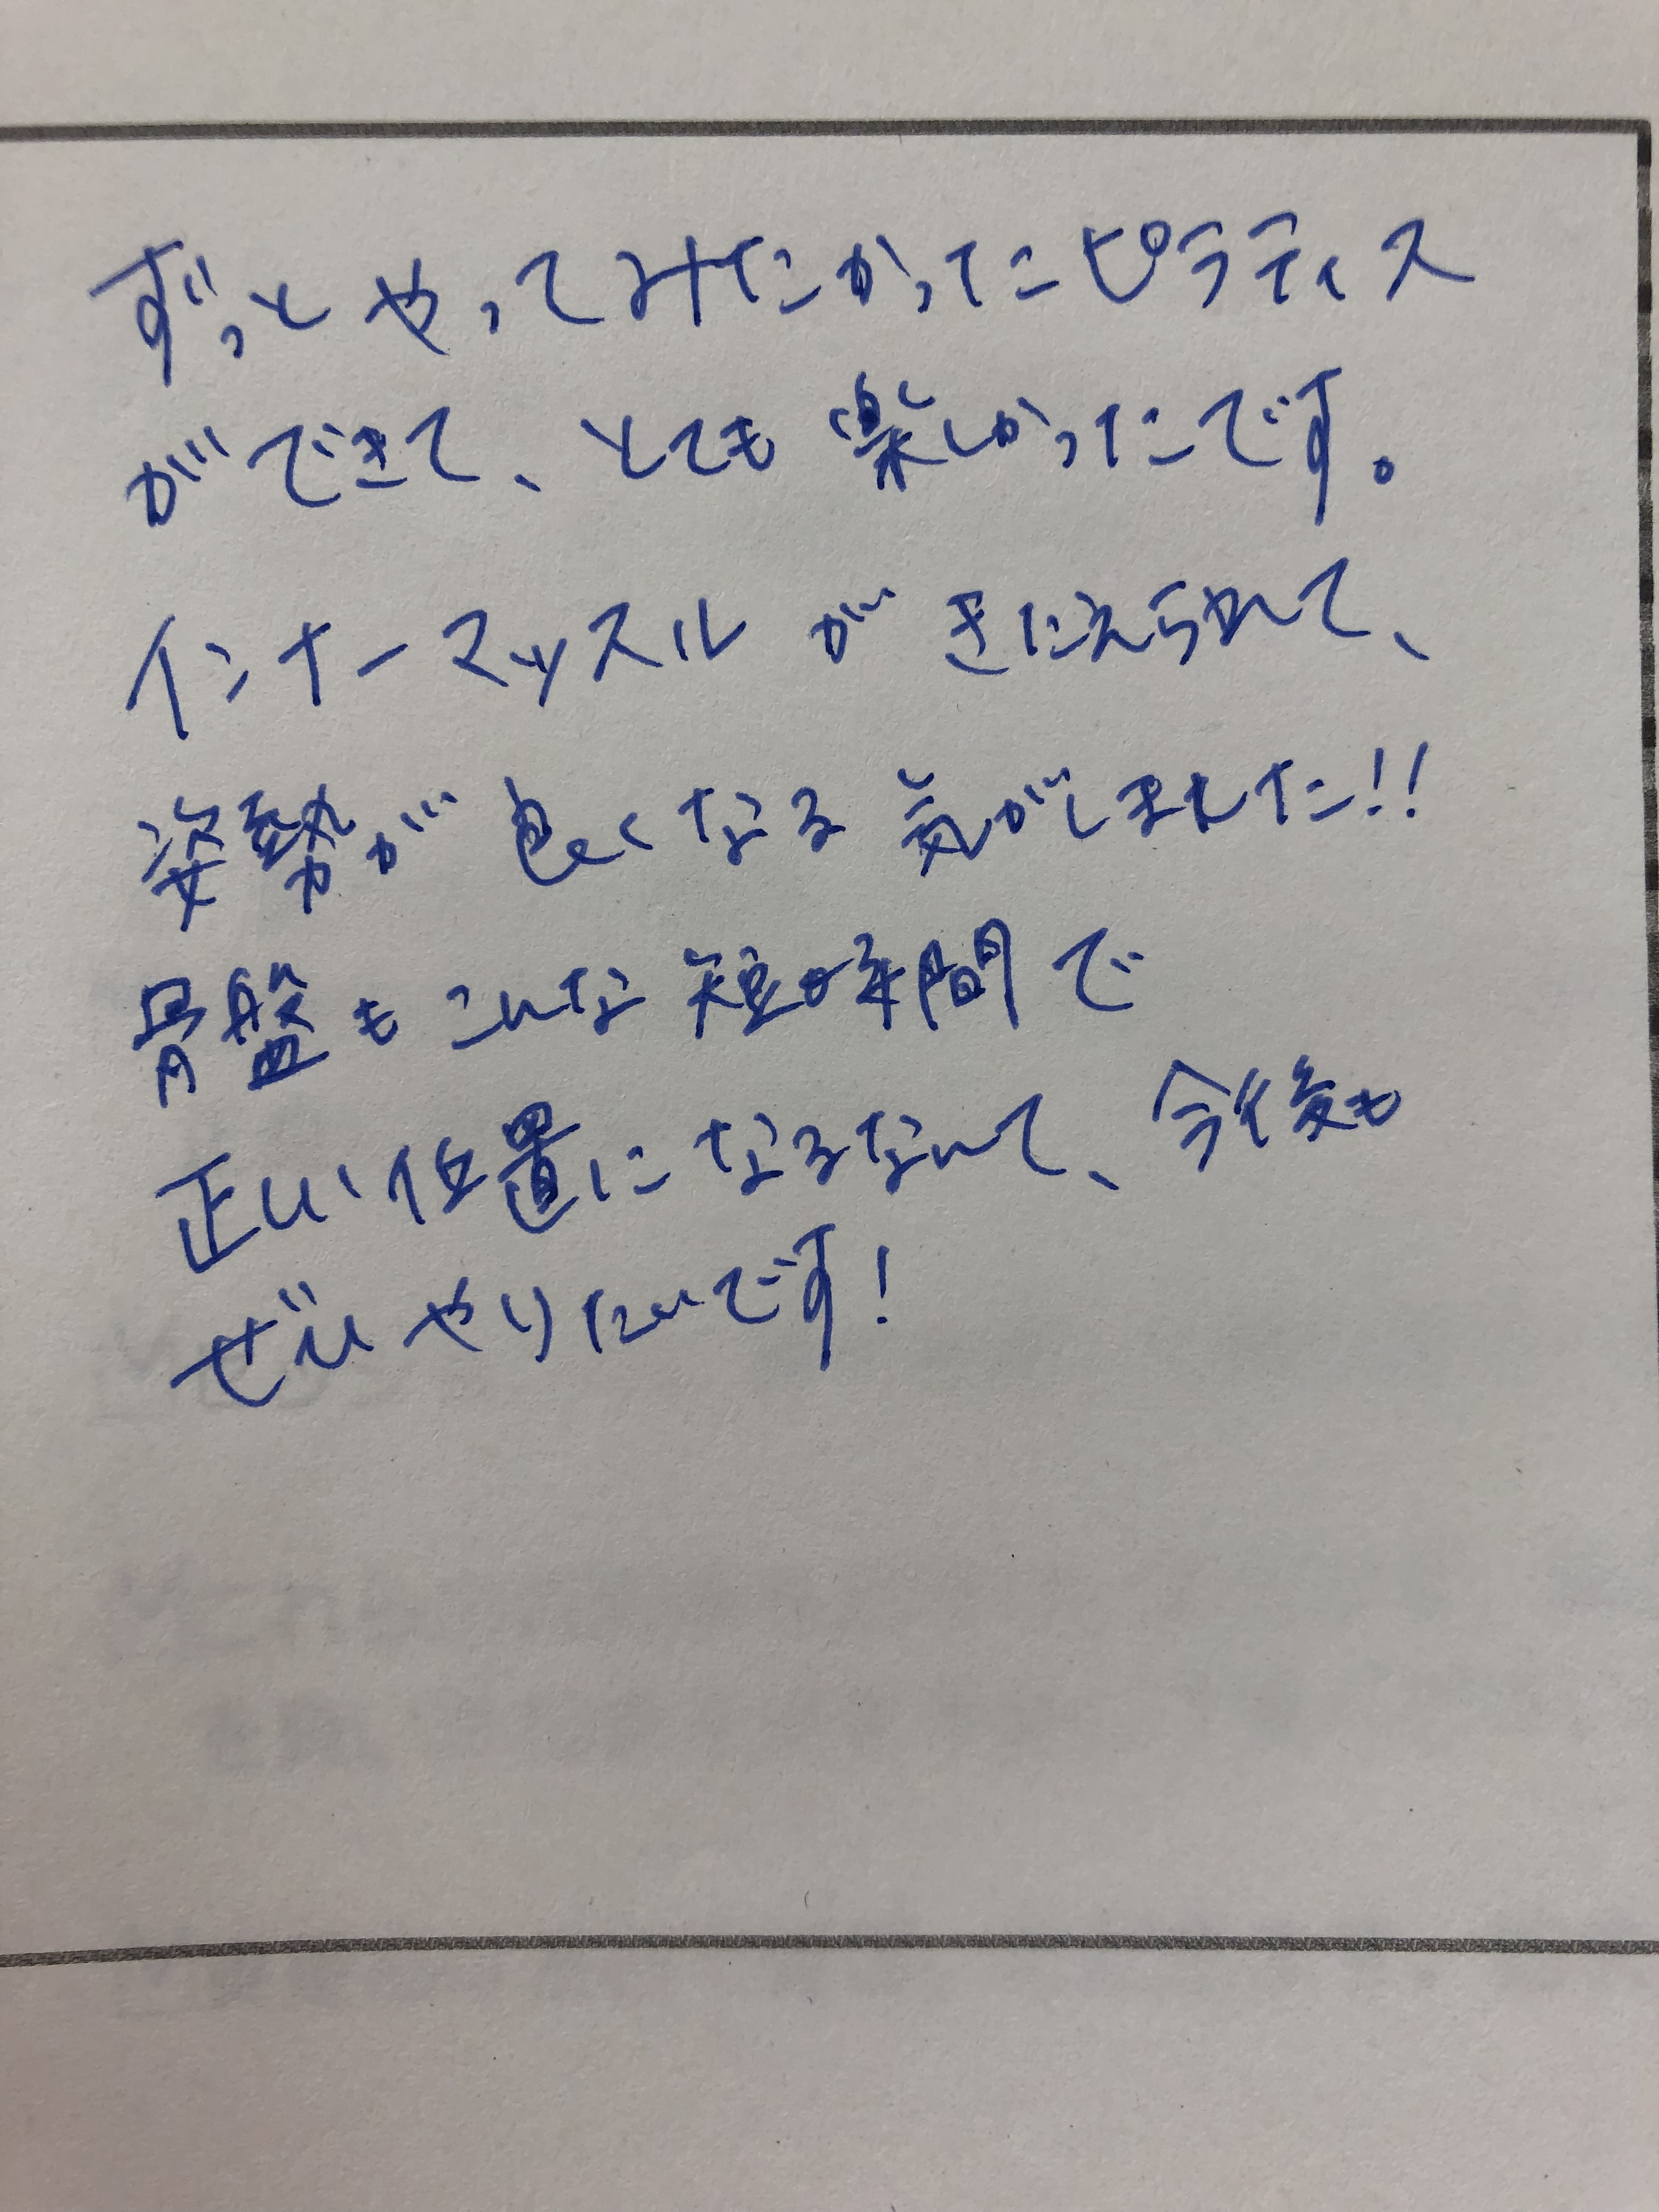 ずっとやってみたかったピラティス
ができて、とても楽しかったです。
インナーマッスルがきたえられて、
姿勢が良くなる気がしました!!
骨盤もこんな短時間で
正しい位置になるなんて、今後も
ぜひやりたいです!